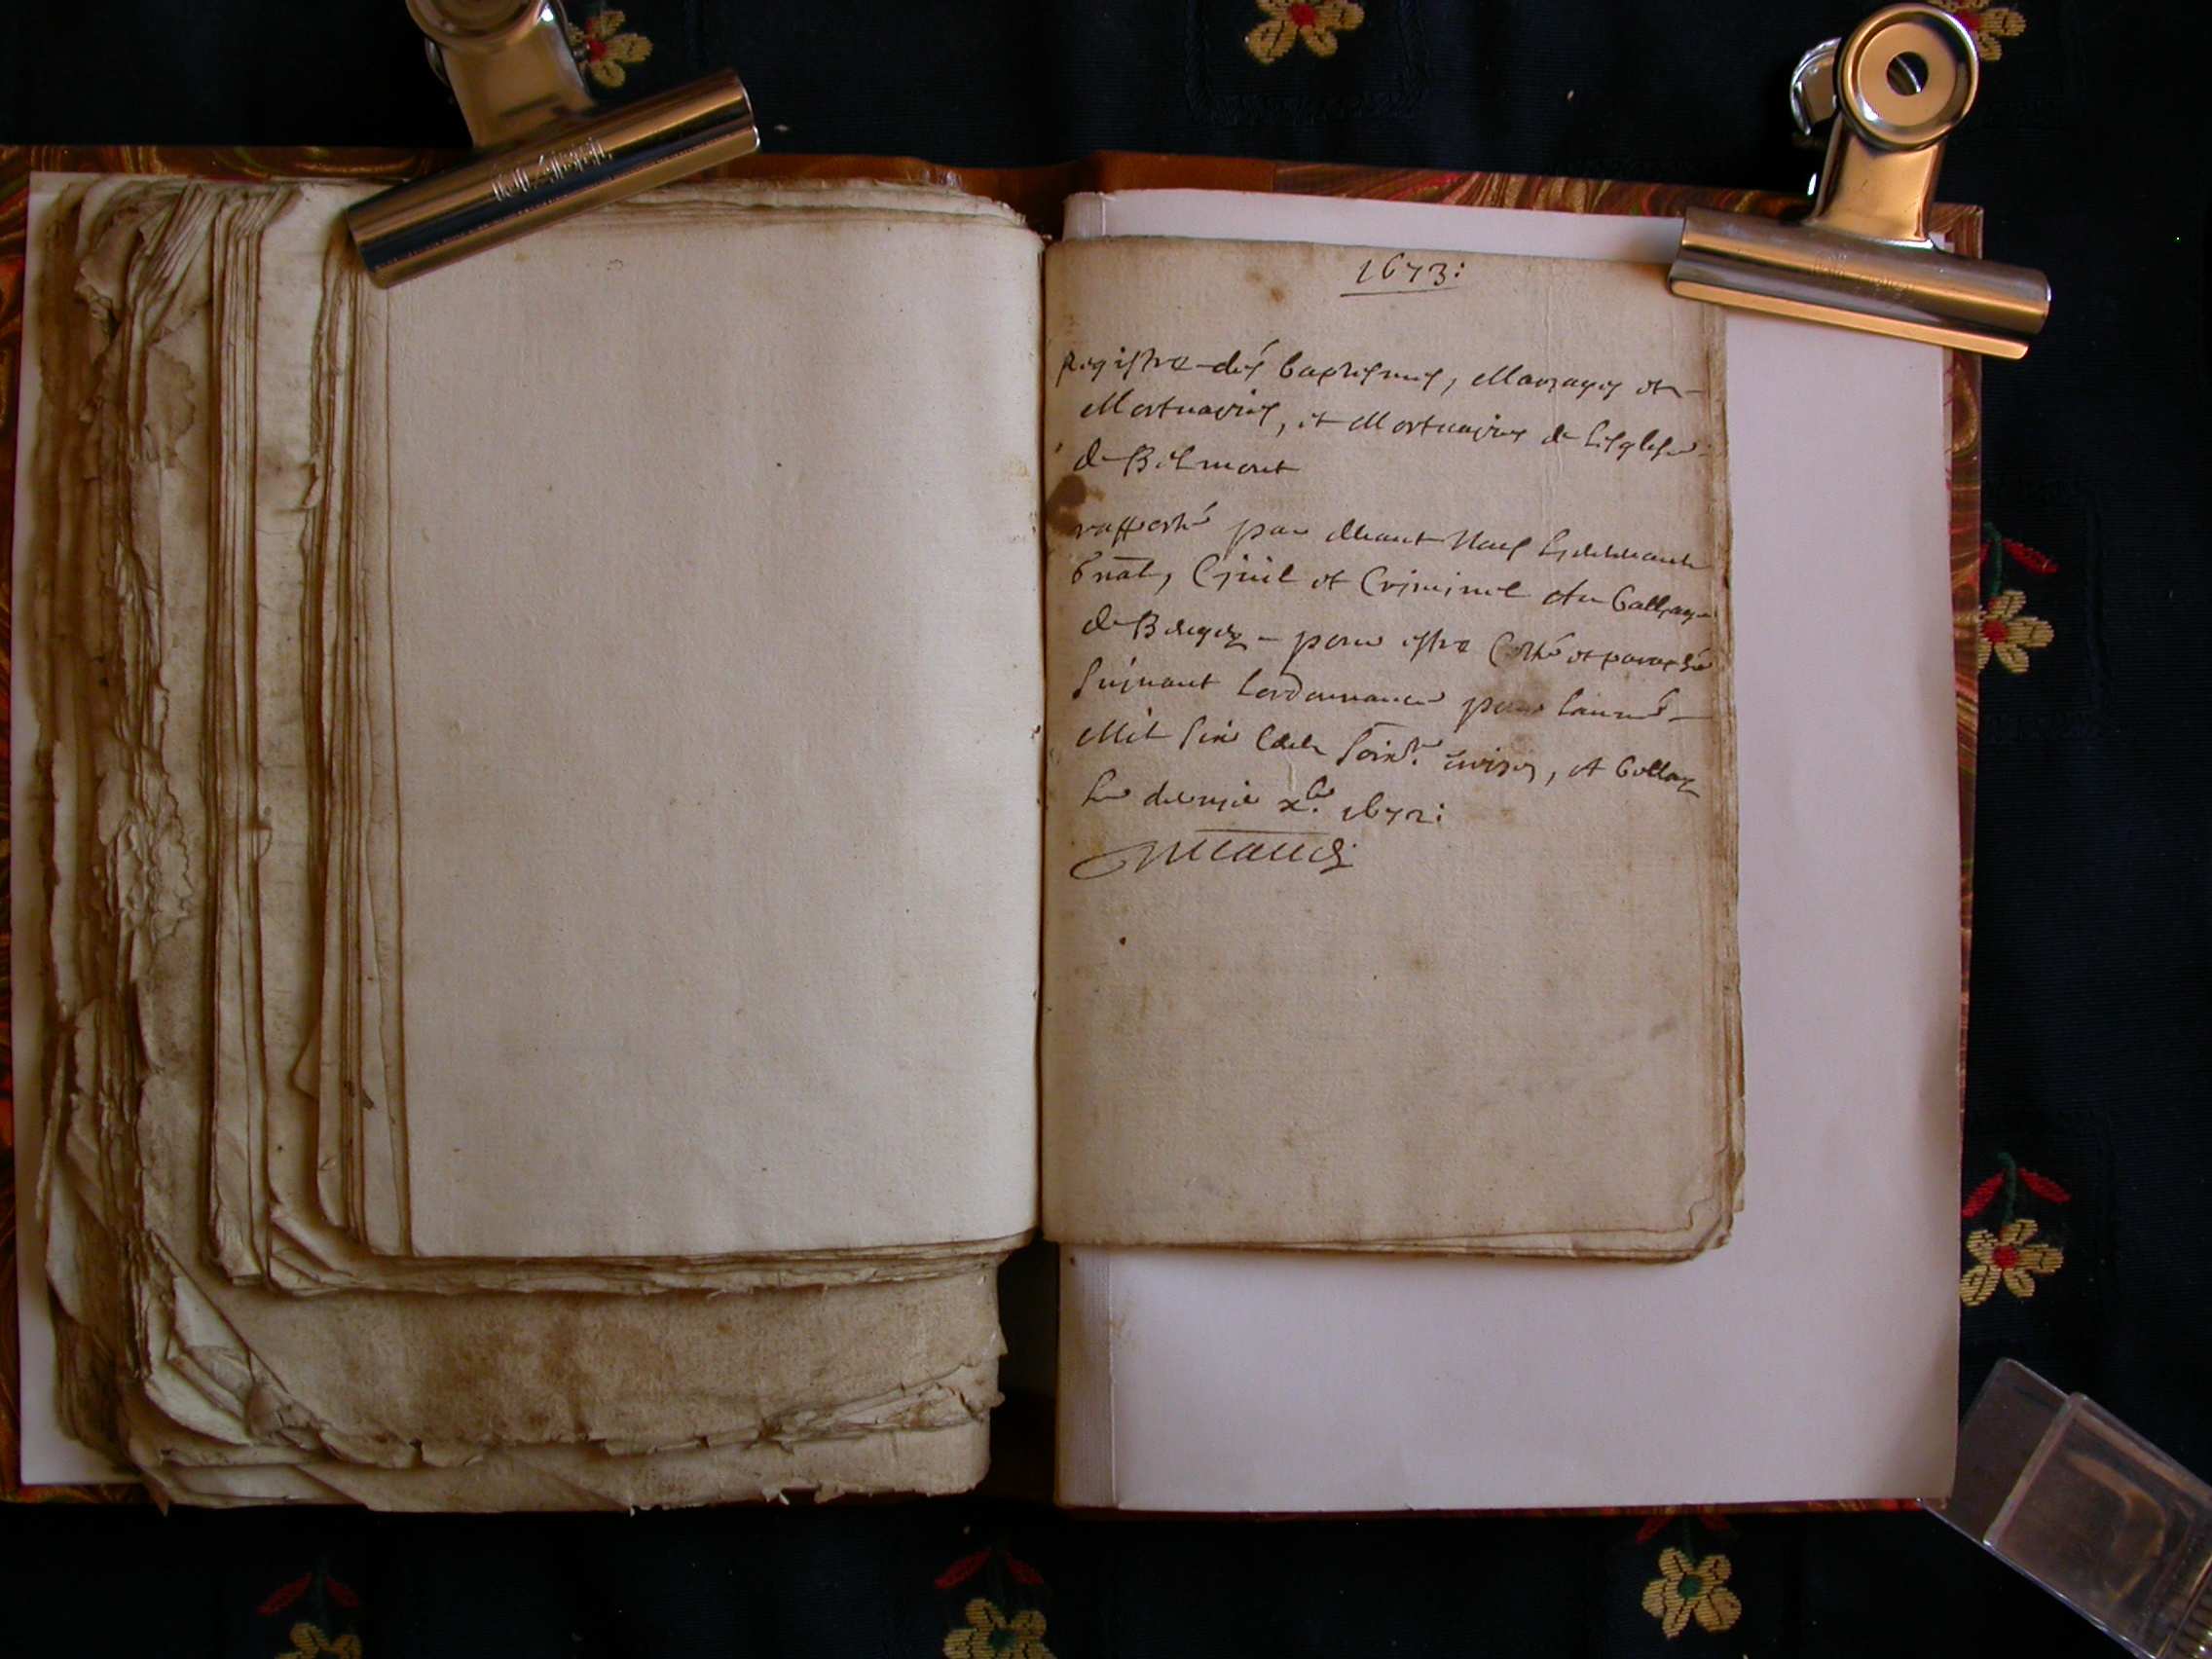 1673:
Registre des baptesmes, Mariages et
Mortuaires, et Mortuaires de lesglise
de Belmont
rapporté par devant Nous Lieutenant
gnãl, Civil et Criminel au Balliage
de Bugey pour estre Cotté et paraphé
suivant lordonnance pour lannée
Mil six Cent soixte treize, A Belley
le dernier xbre 1672: